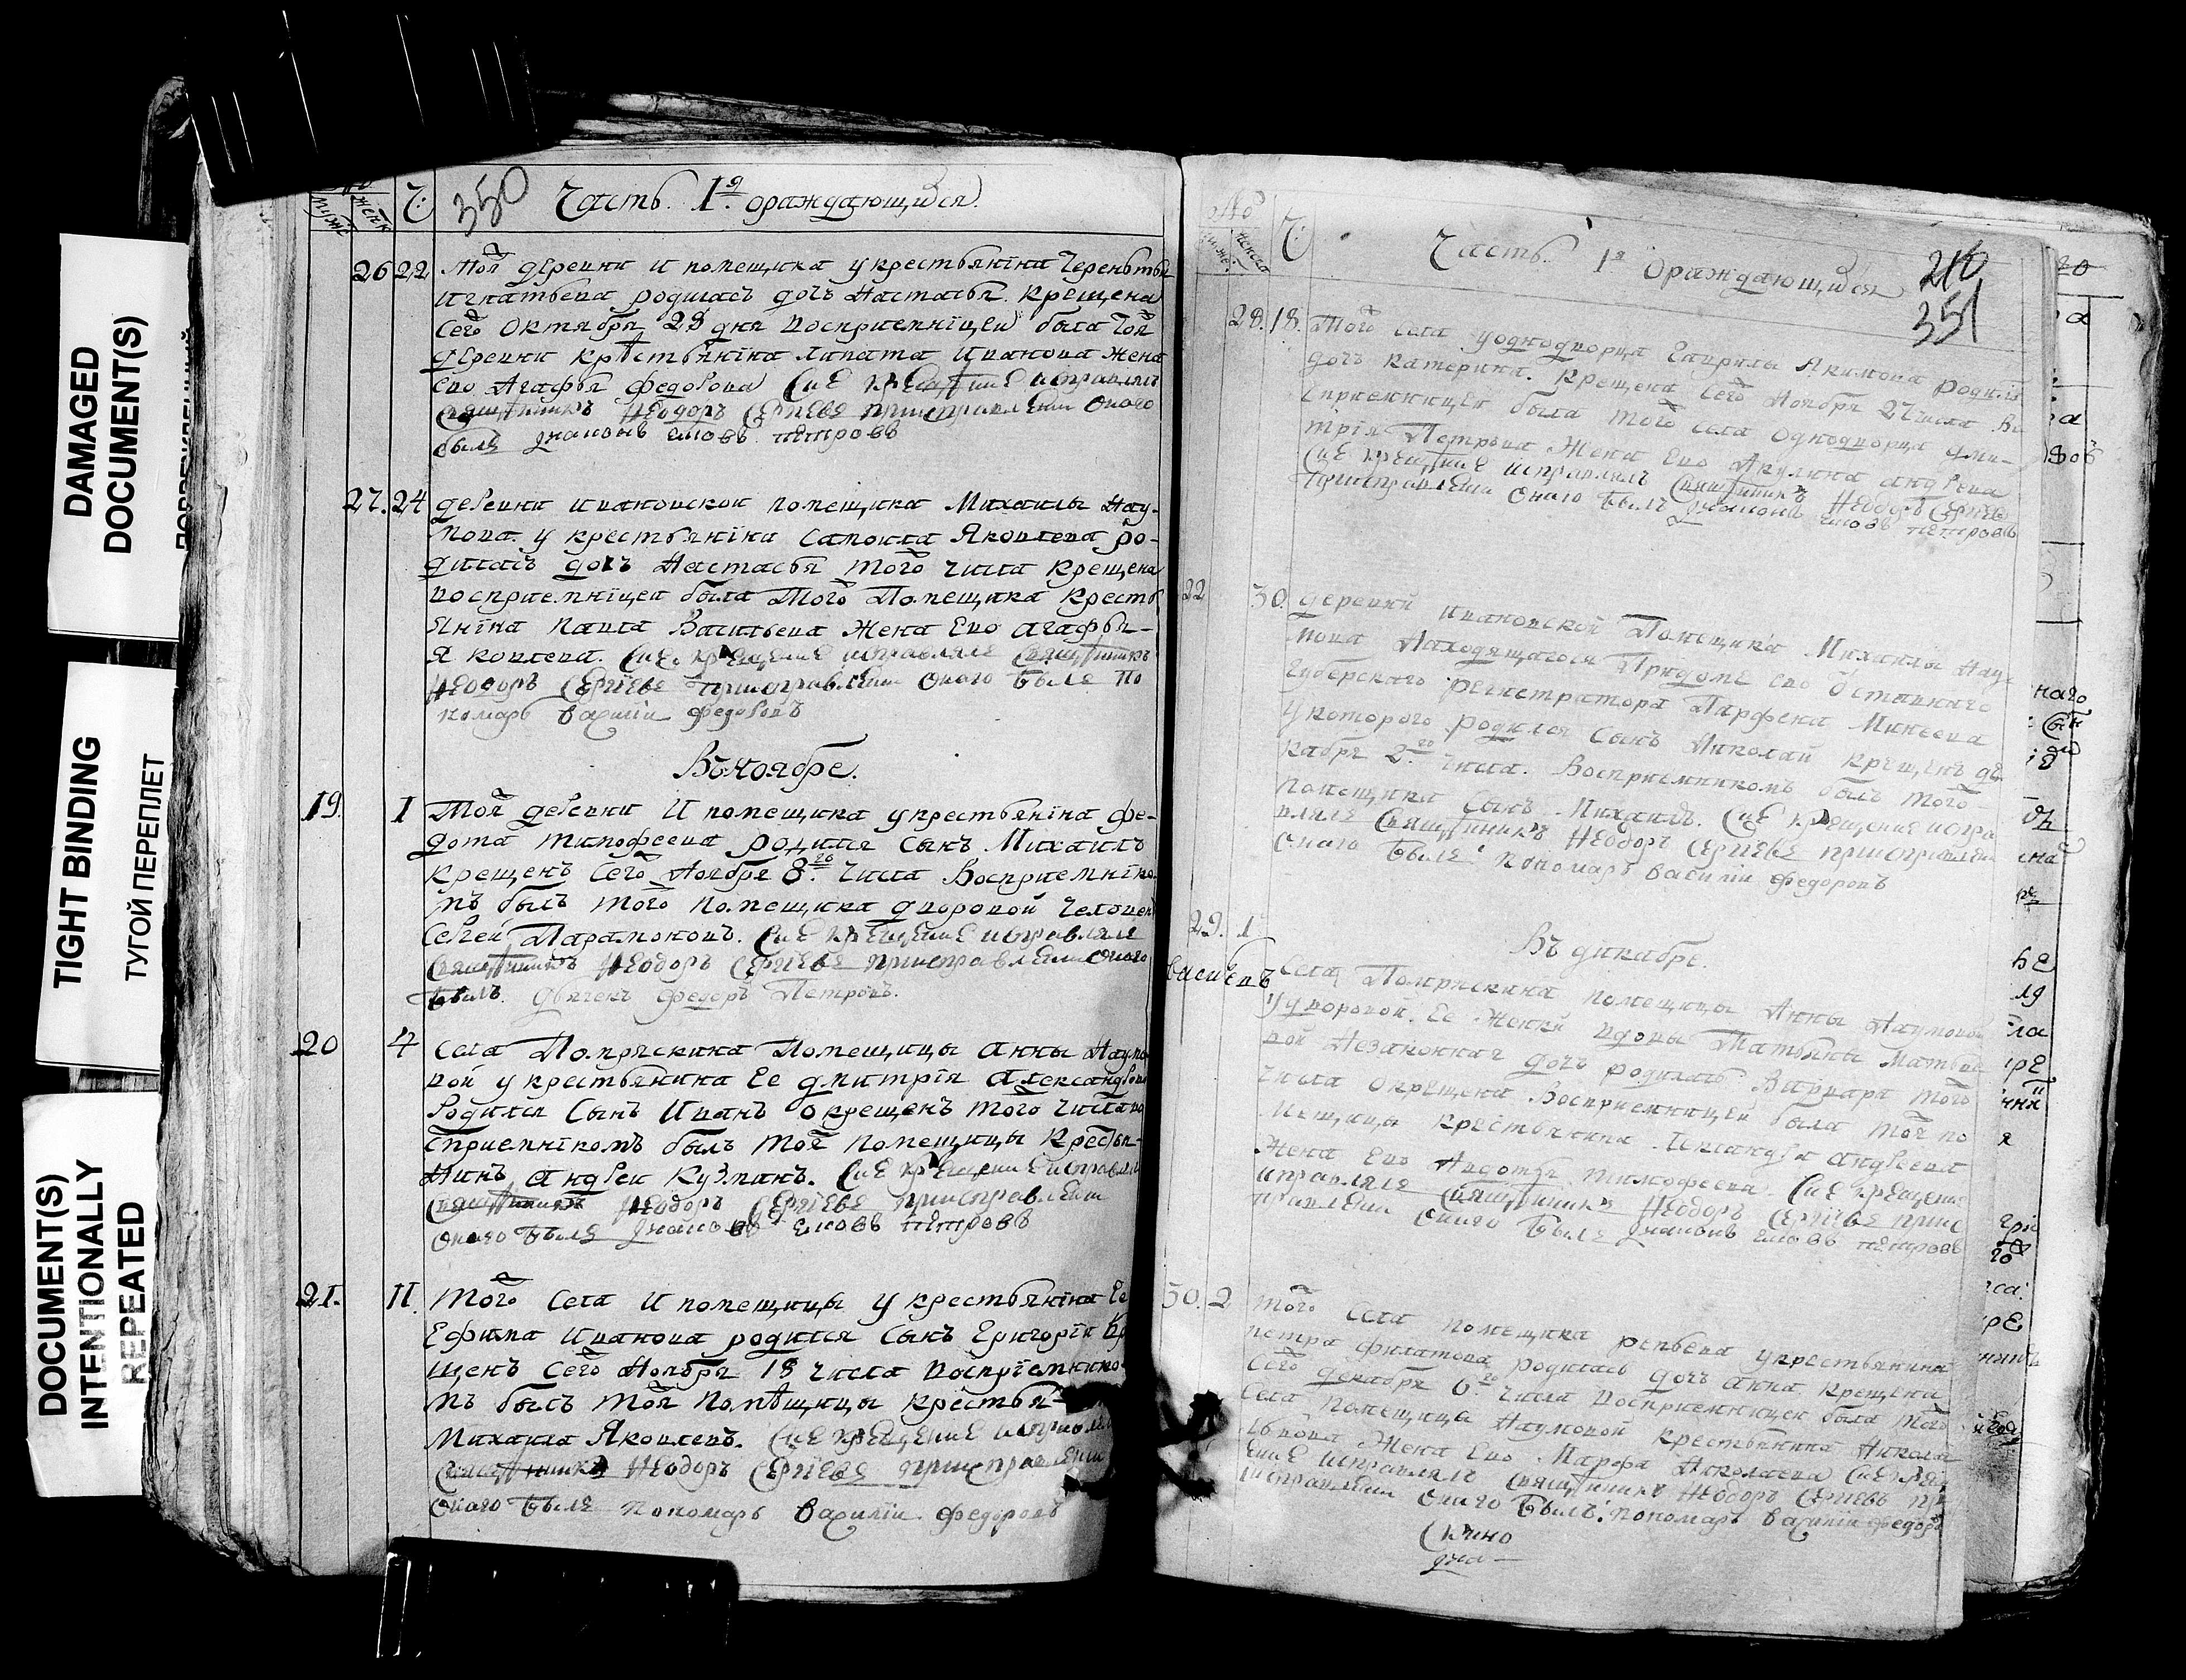 DAMAGED
DOCUMENT(S)
TIGHT BINDING
ТУГОЙ ПЕРЕПЛЕТ
DOCUMENT(S)
INTENTIONALLY
REPEATED
350 Часть 1я ораждающихся
26 22 Той деревни и помещика у крестьянина
Игнатьева родилась дочь Настасья крещена
сего Октября 28 дня восприемницей была той
деревни крестьянина Липата Иванова жена
ево Агафья Федорова Сие крещение исправлял
священникъ Феодоръ Сергiевъ при исправлении оного
былъ диаконъ Iаковъ Петровъ
27. 24 деревни Ивановской помещика Михаилы Нау-
мова у крестьянина Самоила Яковлева ро-
дилась дочь Настасья того числа крещена
восприемницей была того помещика кресть
янина Павла Васильева жена ево Агафья
Яковлева. Сие крещение исправлялъ священникъ
Феодоръ Сергiевъ при исправлении оного былъ по
номарь Василии Федоровъ
Въ ноябре.
19. 1 Той деревни и помещика у крестьянина Фе-
дота Тимофеева родился сынъ Михаилъ
крещенъ сего Ноября 8го числа восприемнико
мъ былъ того помещика дворовой человек
Сергей Парамоновъ. Сие крещение исправлялъ
священникъ Феодоръ Сергiевъ при исправлении оного
былъ дьячекъ Федоръ Петровъ.
20 4 села помещицы Анны Наумо
вой у крестьянина ее Дмитрiя Александрова
родился сынъ Иванъ окрещенъ того числа во
сприемникомъ былъ той помещицы крестья-
нинъ Андреи Кузминъ. Сие крещение исправлял
священникъ Феодоръ Сергiевъ при исправлении
оного былъ диаконъ Iаковъ Петровъ
21. 11. Того села и помещицы у крестьянина ее
Ефима Иванова родился сынъ Григорiи кре
щенъ сего Ноября 18 числа восприемнико
мъ былъ той помещицы крестья
Михаила Яковлевъ. Сие крещение исправлял
священникъ Феодоръ Сергiевъ при исправлении
оного былъ пономарь Василии Федоровъ
Часть 1я ораждающихся 210
351
28. 18. Того села у однодворца Гаврилы Акимова родил
дочь Катерина. крещена сего Ноября 21 числа во
сприемницей была того села однодворца Дми-
трiя Петрова жена ево Акулина Андреева
Сие крещение исправлялъ священникъ Феодоръ Сергiевъ
при исправлении оного былъ диаконъ Iаковъ Петровъ
22 30. деревни Ивановской помещика Михаилы Нау-
мова находящагося при доме ево отставного
губерскаго регистратора Парфена Минеева
у которого родился сынъ Николай крещенъ де
кабря 2го числа. Восприемникомъ былъ того
помещика сынъ Михаилъ. Сие крещение испра
влялъ священникъ Феодоръ Сергiевъ при исправлении
оного былъ пономарь Василии Федоровъ
Въ декабре.
29. 1 села помещицы Анны Наумовой
у дворовой ее женки вдовы Татьяны Матвее
вой незаконная дочь родилась Варвара того
числа окрещена. Восприемницей была той по
мещицы крестьянина Александра Андреева
жена ево Авдотья Тимофеева Сие крещение
исправлялъ священникъ Феодоръ Сергiевъ при ис
правлении оного былъ диаконъ Iаковъ Петровъ
30. 2 Того села помещика у крестьянина
Петра Филатова родилась дочь Анна крещена
сего декабря 6го числа восприемницей была того
села помещицы Наумовой крестьянина Никола
жена ево Марфа Николаева Сие крещ
ение исправлялъ священникъ Феодоръ Сергiевъ при
исправлении оного былъ пономарь Василии Федоръ